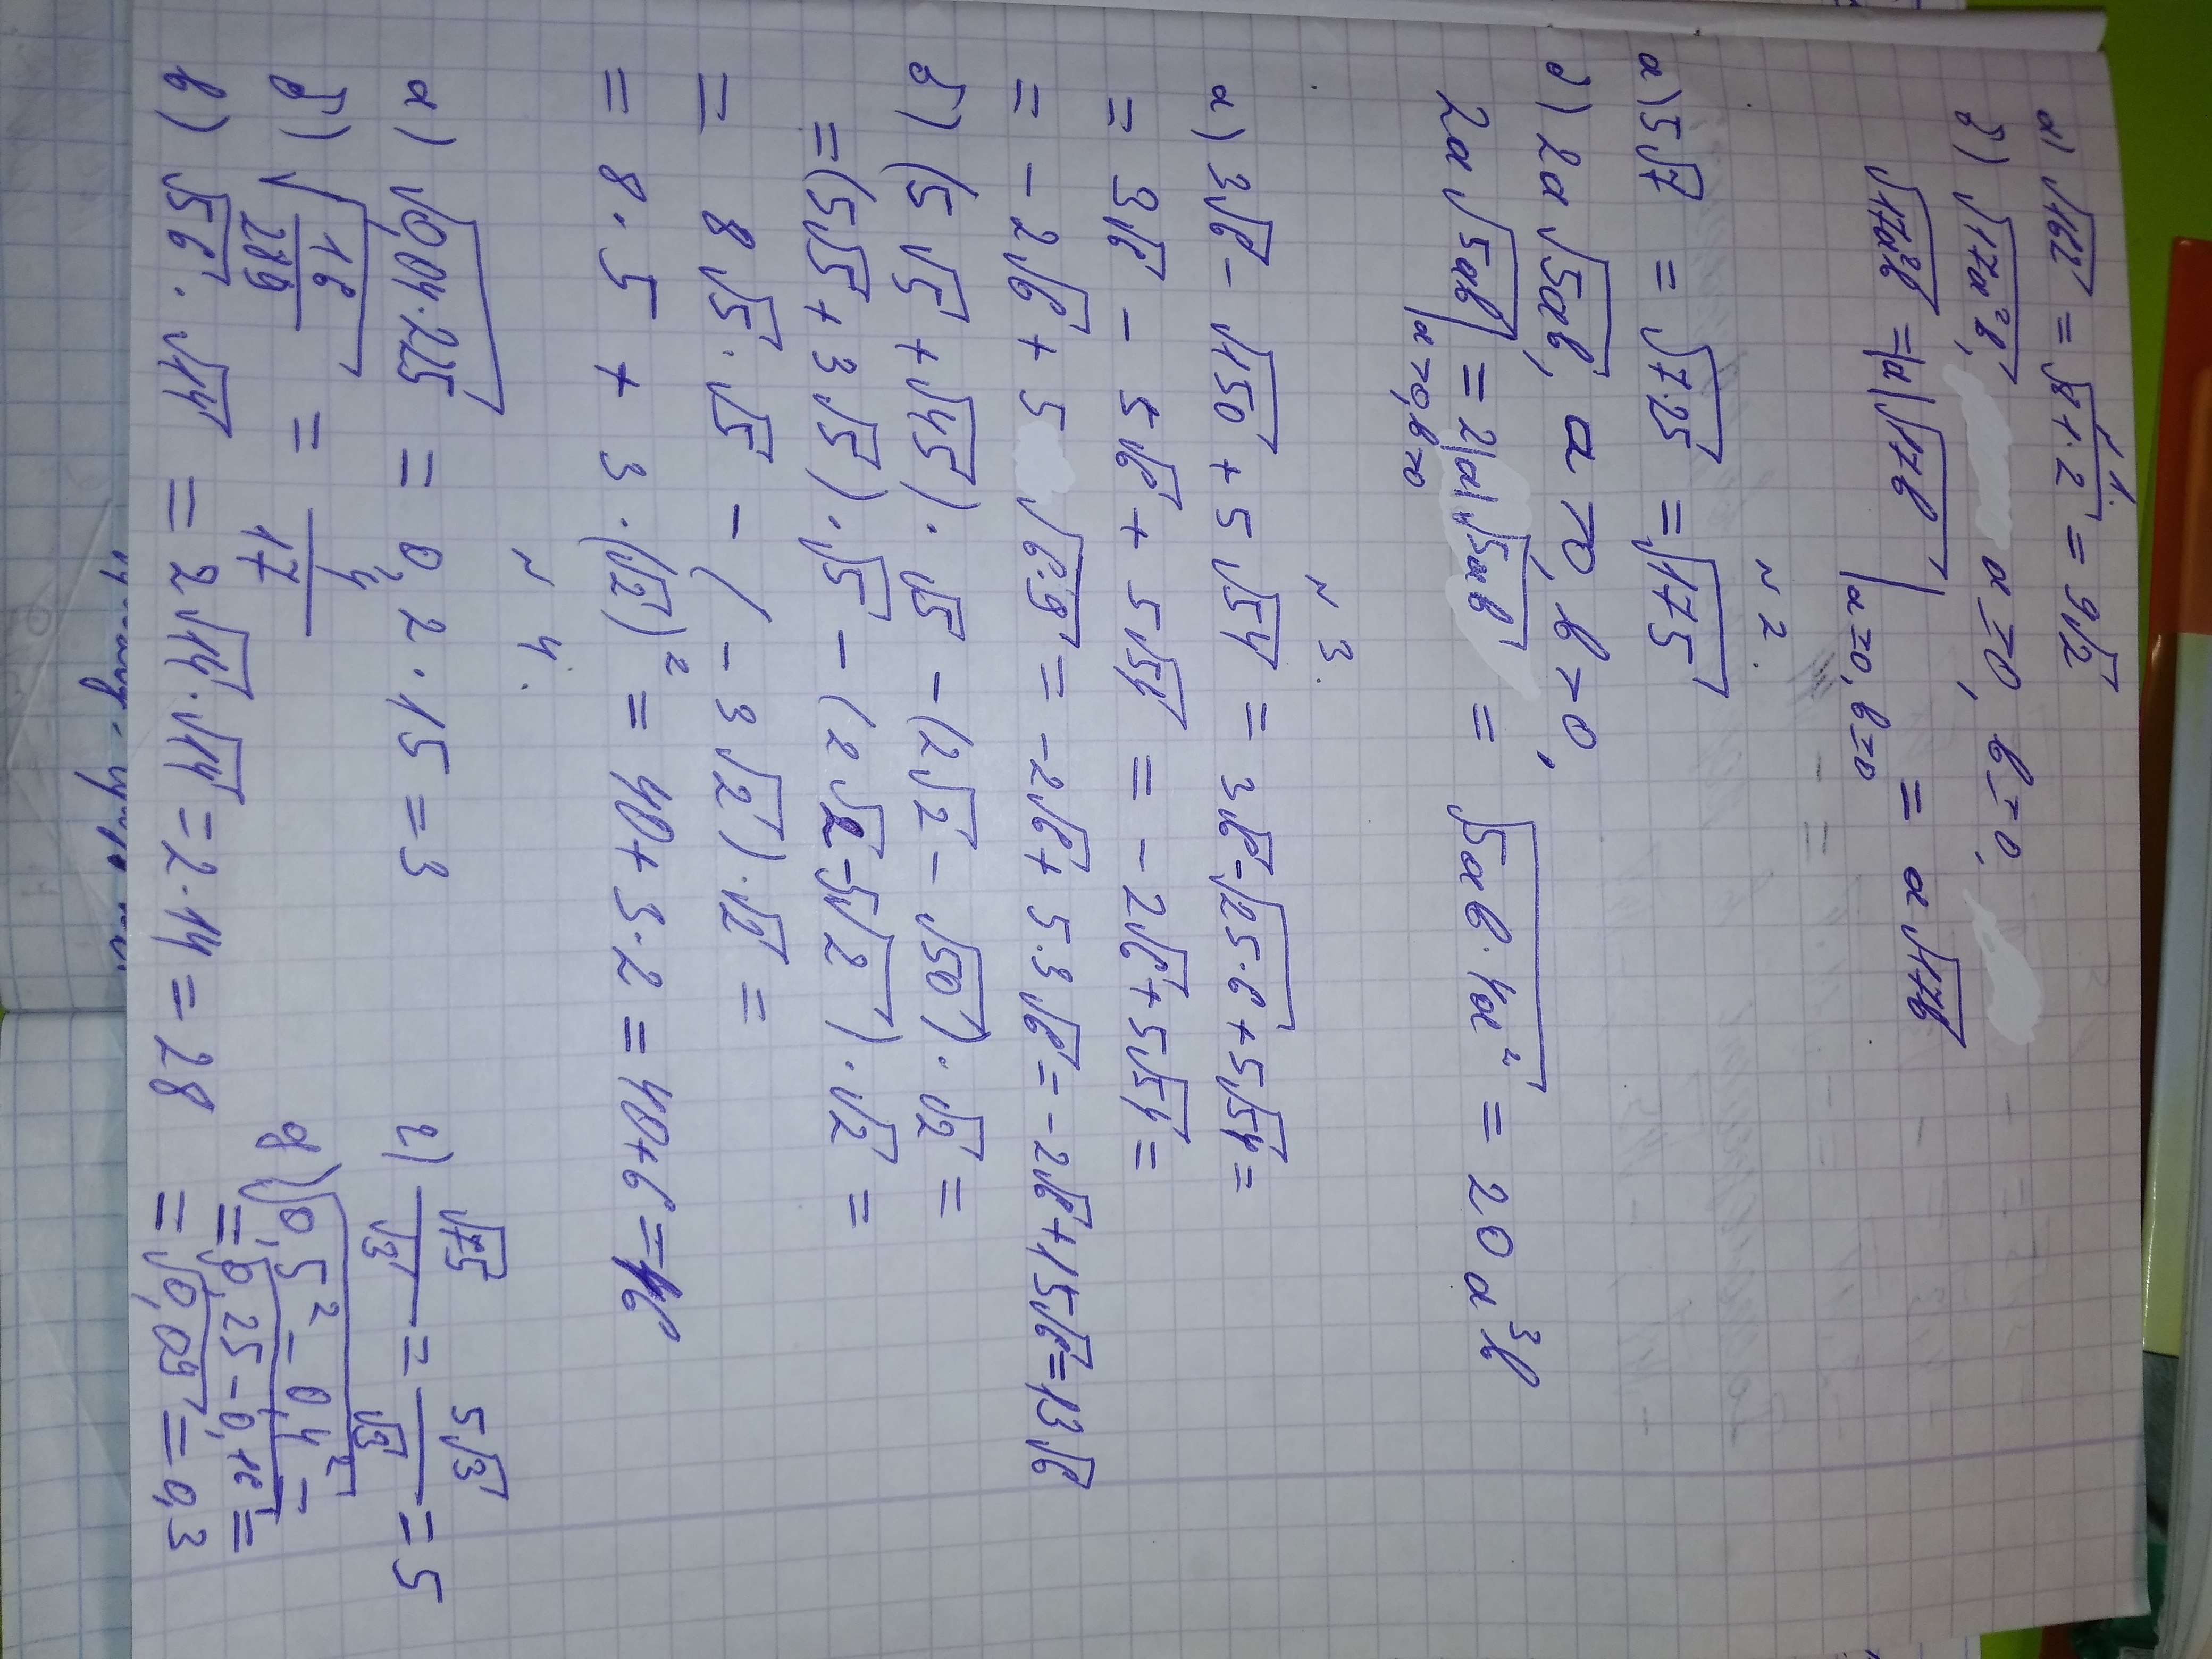 № 1.
а) √162 = √81·2 = 9√2
б) √17a²b, a ≥ 0, b ≥ 0,
√17a²b = |a|√17b | a≥0, b≥0 = a√17b
№ 2.
а) 5√7 = √7·25 = √175
б) 2a√5ab, a > 0, b > 0,
2a√5ab | a>0, b>0 = 2|a|√5ab = √5ab·4a² = 20a³b
№ 3.
а) 3√6 - √150 + 5√54 = 3√6 - √25·6 + 5√54 =
= 3√6 - 5√6 + 5√54 = -2√6 + 5√54 =
= -2√6 + 5√6·9 = -2√6 + 5·3√6 = -2√6 + 15√6 = 13√6
б) (5√5 + √45)·√5 - (2√2 - √50)·√2 =
= (5√5 + 3√5)·√5 - (2√2 - 5√2)·√2 =
= 8√5·√5 - (-3√2)·√2 =
= 8·5 + 3·(√2)² = 40 + 3·2 = 40 + 6 = 46
№ 4.
а) √0,04·225 = 0,2·15 = 3
б) √16/289 = 4/17
в) √56·√14 = 2√14·√14 = 2·14 = 28
г) √75/√3 = 5√3/√3 = 5
д) √0,5² - 0,4² =
= √0,25 - 0,16 =
= √0,09 = 0,3